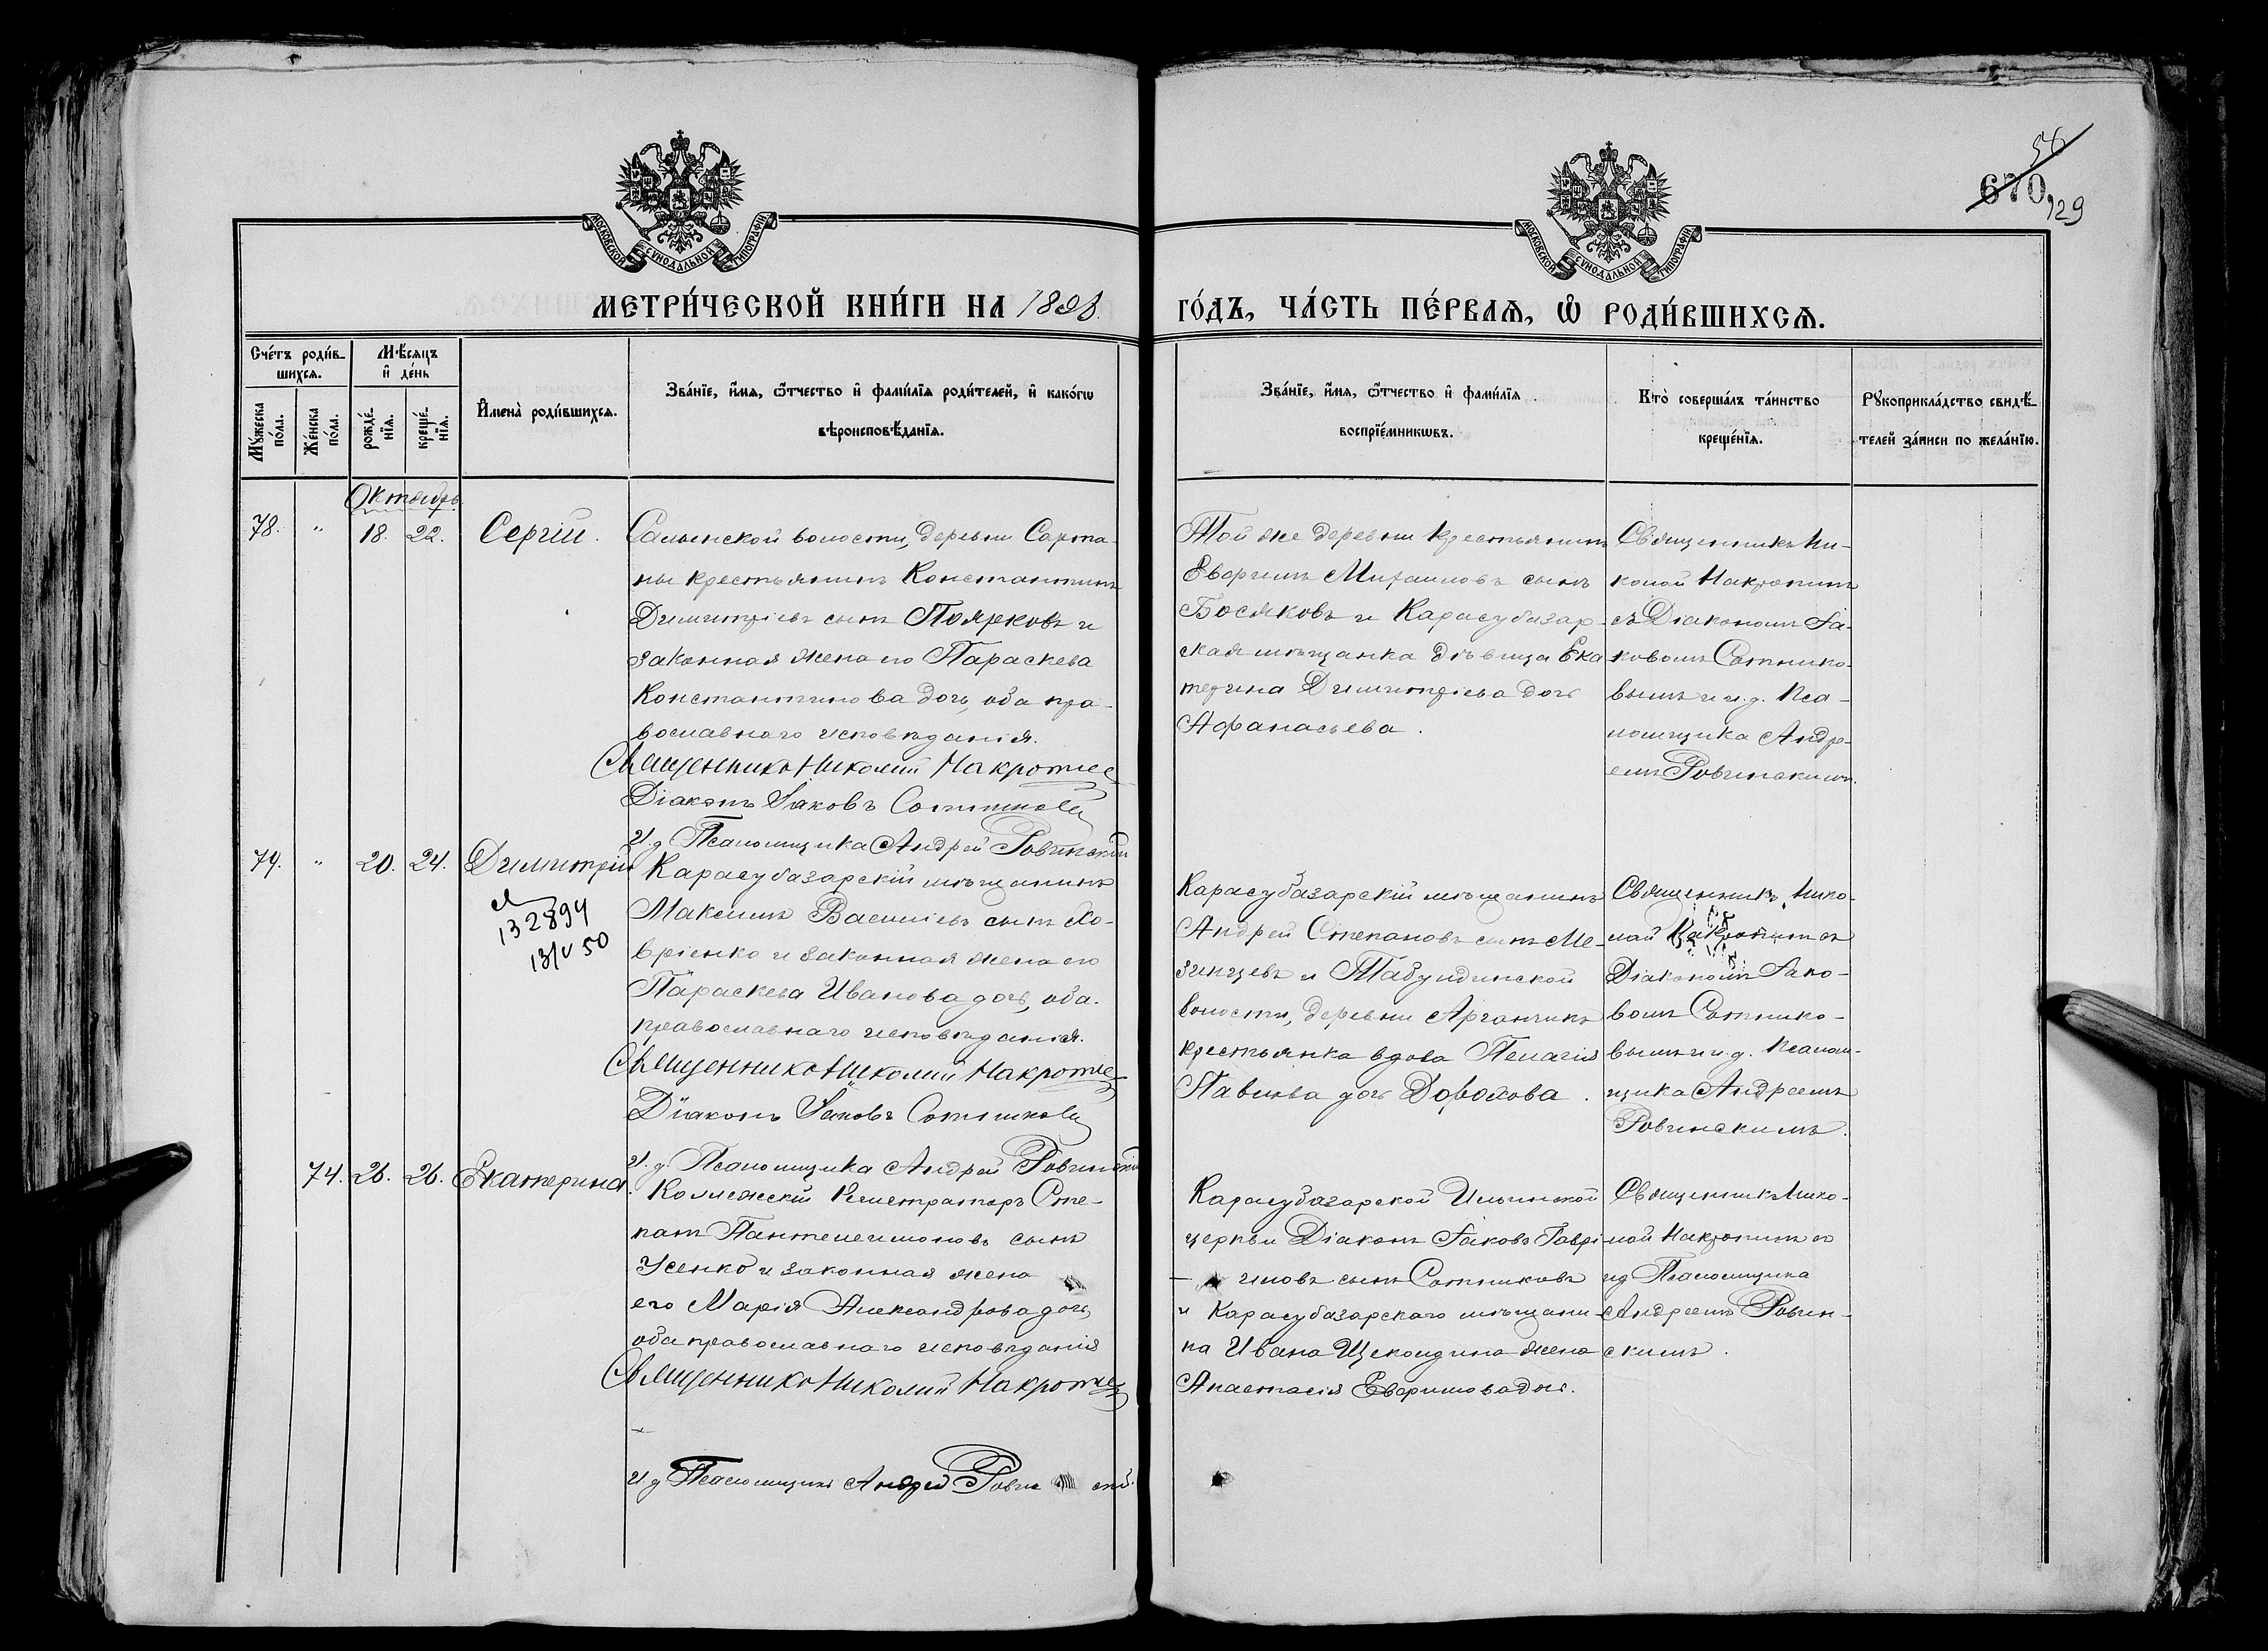 56
670
129
МОСКОВСКОЙ СѴНОДАЛЬНОЙ ТИПОГРАФІИ
МОСКОВСКОЙ СѴНОДАЛЬНОЙ ТИПОГРАФІИ
МЕТРИ́ЧЕСКОЙ КНИ́ГИ НА 1898.
ГО́ДЪ, ЧА́СТЬ ПЕ́РВАѦ, Ѽ РОДИ́ВШИХСѦ.
Сче́тъ роди́в-
шихсѧ.
Мѣ́сѧцъ
и҆ де́нь
Мꙋ́жеска по́ла.
Же́нска по́ла.
рожде́-
нїѧ.
креще́-
нїѧ.
И҆мена̀ роди́вшихсѧ.
Зва́нїе, и҆́мѧ, ѻ҆́тчество и҆ фами́лїѧ роди́телей, и҆ како́гѡ
вѣроисповѣ́данїѧ.
Зва́нїе, и҆́мѧ, ѻ҆́тчество и҆ фами́лїѧ
воспрїе́мникѡвъ.
Кто̀ соверша́лъ та́инство
креще́нїѧ.
Рꙋкоприкла́дство свидѣ́-
телей за́писи по жела́нїю.
Октябрь
78. " 18. 22. Сергій.
Салынской волости, деревни Сарта-
ны крестьянинъ Константинъ
Димитріевъ сынъ Поярковъ и
законная жена его Параскева
Константинова дочь, оба пра-
вославнаго исповѣданія.
Священникъ Николай Макротис
Діаконъ Іаковъ Сотников
И. д. Псаломщика Андрей Ровинский
Той же деревни крестьянинъ
Михаиловъ сынъ
Босяковъ и Карасубазар-
ская мѣщанка дѣвица Ека
терина Димитріева дочь
Афанасьева.
Священникъ Ни-
колай
съ Діакономъ Іа-
ковомъ Сотнико-
вымъ и и. д. Пса-
ломщика Андре-
емъ Ровинскимъ.
79. " 20. 24. Димитрій
132894
13/V 50
Карасубазарскій мѣщанинъ
Максимъ Василіевъ сынъ Хо-
вріенко и законная жена его
Параскева Иванова дочь, оба
православнаго исповѣданія.
Священникъ Николай
Діаконъ Іаковъ Сотников
И. д. Псаломщика Андрей Ровинский
Карасубазарскій мѣщанинъ
Андрей Степановъ сынъ Ме-
зинцевъ и Табулдинской
волости, деревни Арганчикъ
крестьянка вдова Пелагія
Павлова дочь Дорохова.
Священникъ Нико-
лай
Діакономъ Іако-
вомъ Сотнико-
вымъ и и. д. Псалом-
щика Андреемъ
Ровинскимъ.
74. 26. 26. Екатерина.
Коллежскій Регистраторъ Сте-
панъ Пантелеимоновъ сынъ
Усенко и законная жена
его Марія Александрова дочь,
оба православнаго исповѣданія
Священникъ Николай
И. д. Псаломщика Андрей Ровинский
Карасубазарской Ильинской
церкви Діаконъ Іаковъ Гаврі-
иловъ сынъ Сотниковъ
и Карасубазарскаго мѣщани-
на Ивана Щеколдина жена
Анастасія дочь.
Священникъ Нико-
лай съ
ид Псаломщика
Андреемъ Ровин-
скимъ.